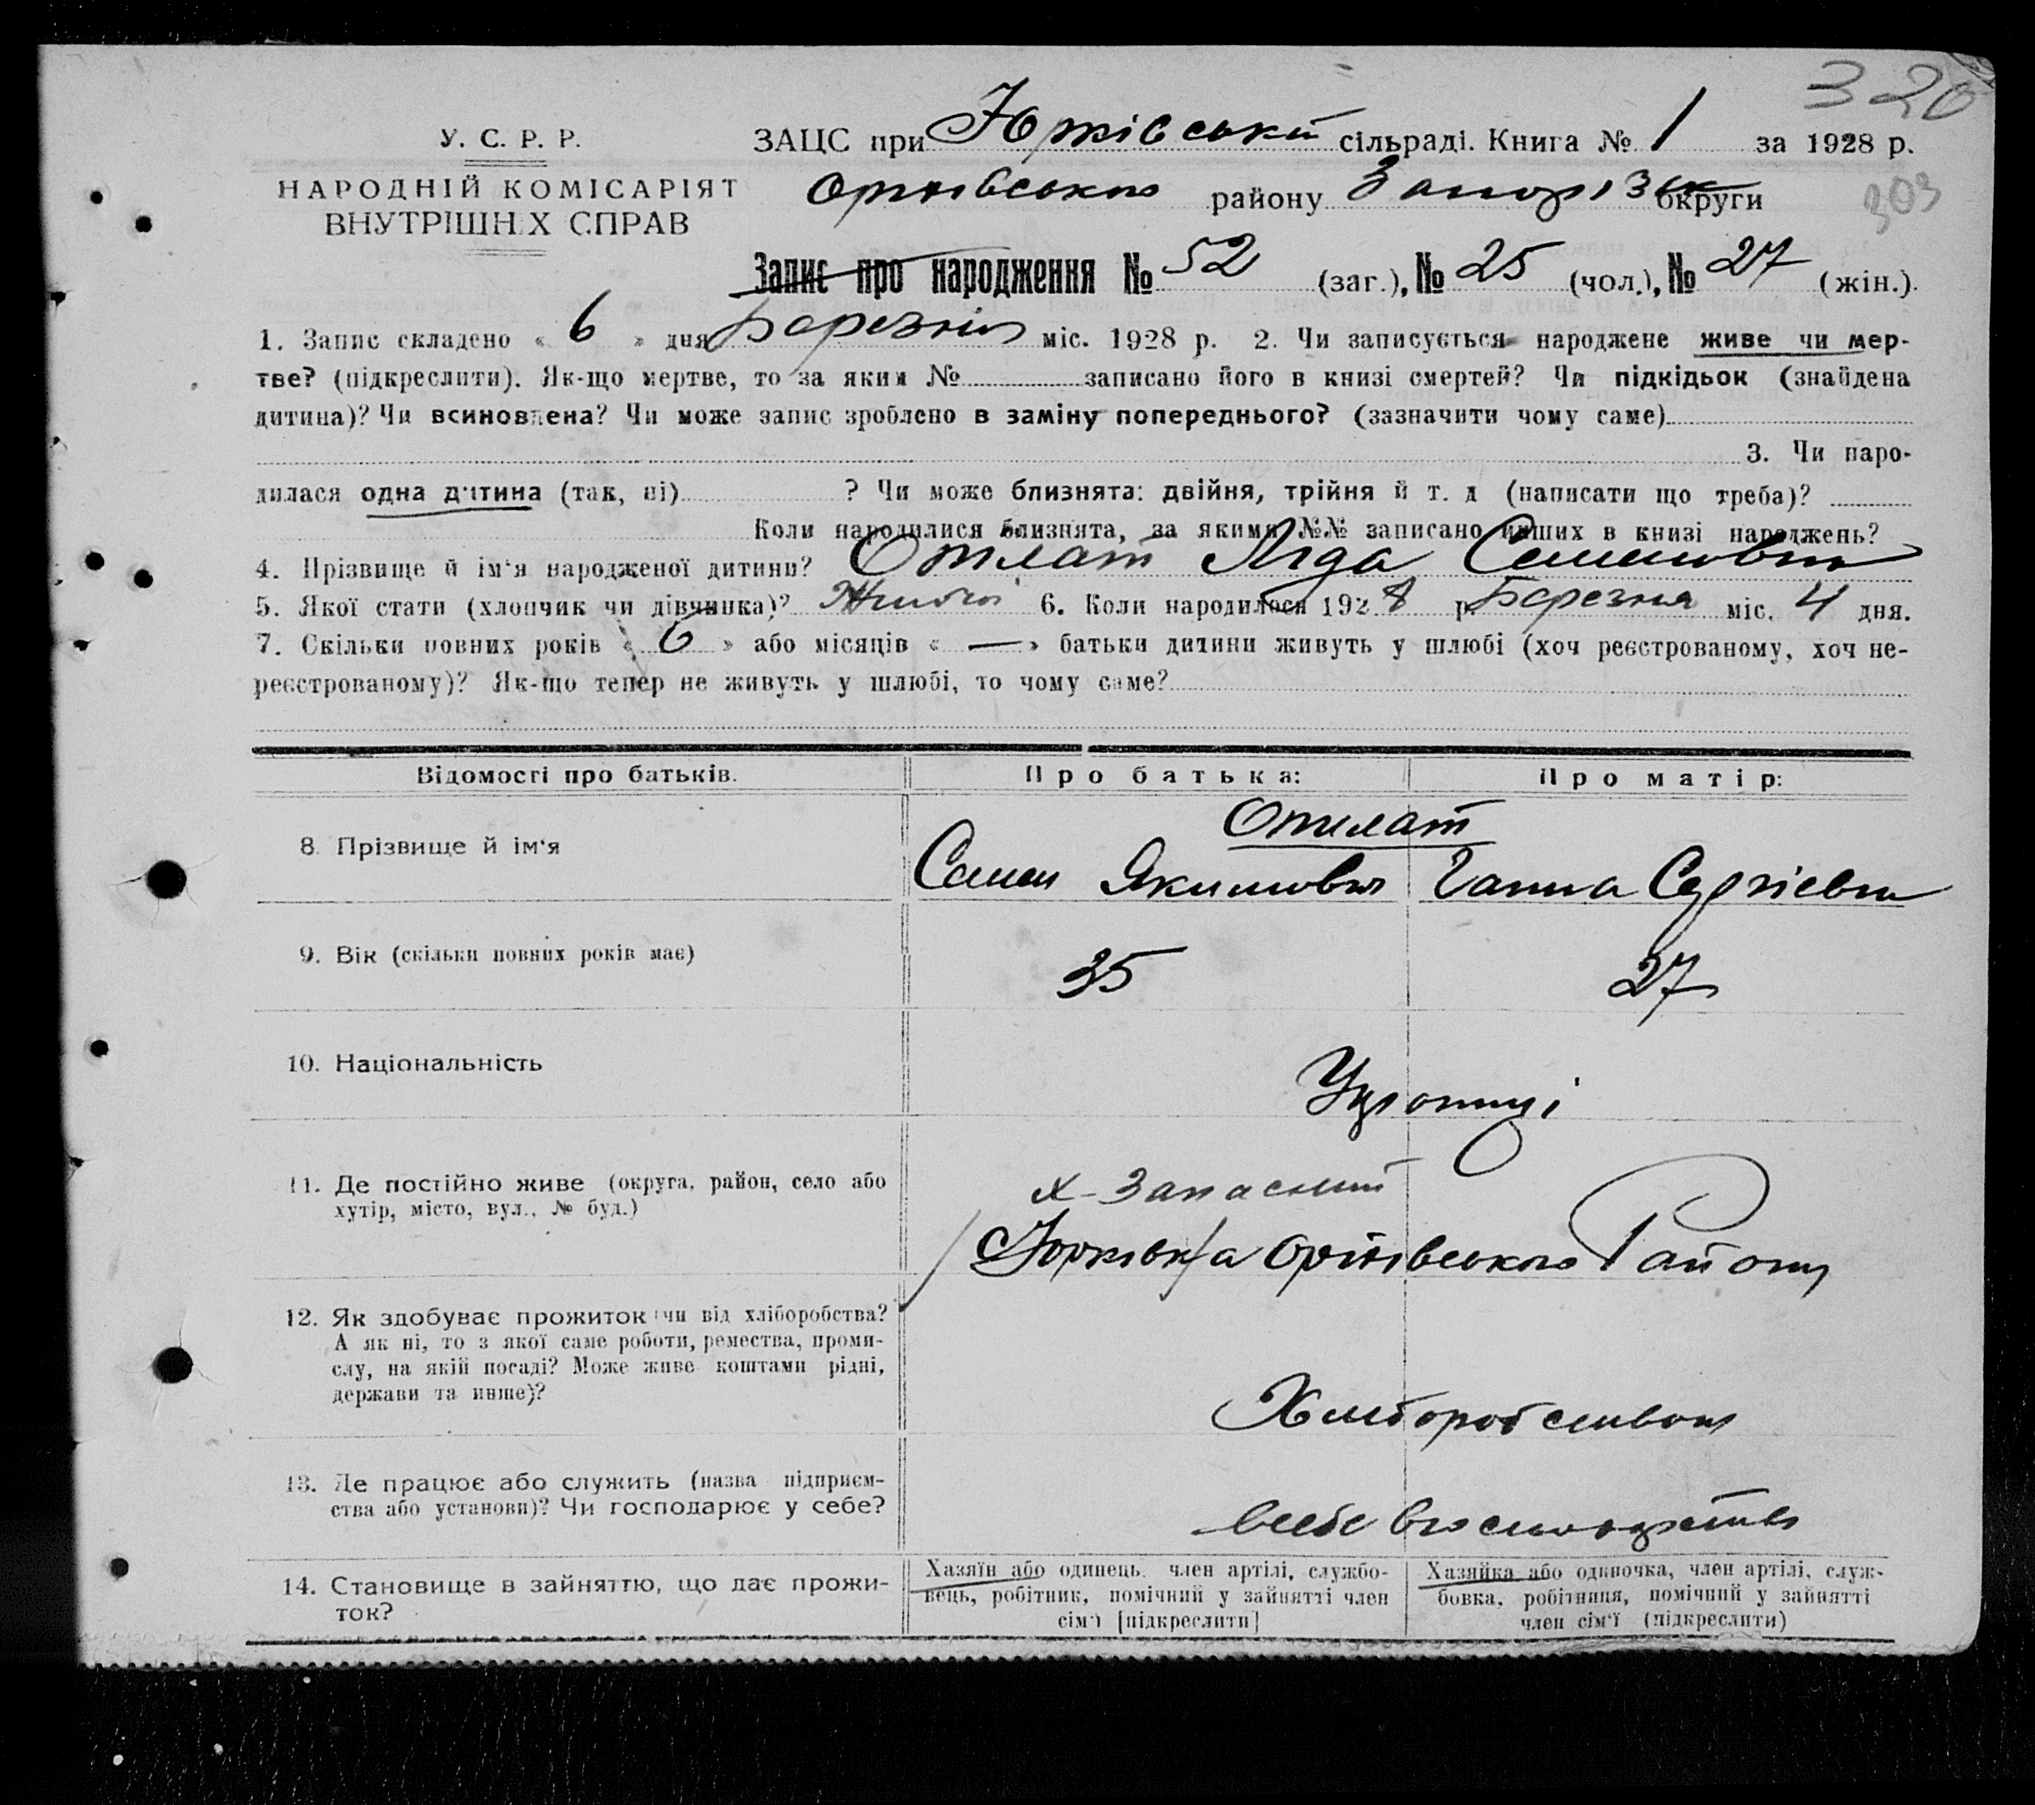 320
У. С. Р. Р.
ЗАЦС при Юрківській сільраді. Книга № 1 за 1928 р.
НАРОДНІЙ КОМІСАРІЯТ
ВНУТРІШН.Х СПРАВ
Оріхівського району Запоріз округи
303
Запис про народження № 52 (заг.), № 25 (чол.), № 27 (жін.).
1. Запис складено « 6 » дня Березнія міс. 1928 р. 2. Чи записується народжене живе чи мер-
тве? (підкреслити). Як-що мертве, то за яким № записано його в книзі смертей? Чи підкідьок (знайдена
дитина)? Чи всиновлена? Чи може запис зроблено в заміну попереднього? (зазначити чому саме)
3. Чи наро-
дилася одна дитина (так, ні) ? Чи може близнята: двійня, трійня й т. д (написати що треба)?
Коли народилися близнята, за якими №№ записано инших в книзі народжень?
4. Прізвище й ім'я народженої дитини? Лида Семеновна
5. Якої стати (хлопчик чи дівчинка)? Жиночої 6. Коли народилося 1928 р. Березня міс. 4 дня.
7. Скільки повних років « 6 » або місяців « — » батьки дитини живуть у шлюбі (хоч реєстрованому, хоч не-
реєстрованому)? Як-що тепер не живуть у шлюбі, то чому саме?
Відомості про батьків.
Про батька:
Про матір:
8. Прізвище й ім'я
Семен Якимович
Ганна Сергіевна
9. Вік (скільки повних років має)
35
27
10. Національність
Українці
11. Де постійно живе (округа, район, село або
хутір, місто, вул., № буд.)
х-Запасний
Юрківка Оріхівського Району
12. Як здобуває прожиток (чи від хліборобства?
А як ні, то з якої саме роботи, ремества, проми-
слу, на якій посаді? Може живе коштами рідні,
держави та инше)?
Хлиборобством
13. Де працює або служить (назва підприєм-
ства або установи)? Чи господарює у себе?
всебе вгосподарстві
14. Становище в зайняттю, що дає прожи-
ток?
Хазяїн або одинець, член артілі, службо-
вець, робітник, помічний у зайнятті член
сім'ї [підкреслити]
Хазяйка або одиночка, член артілі, служ-
бовка, робітниця, помічний у зайнятті
член сім'ї (підкреслити)